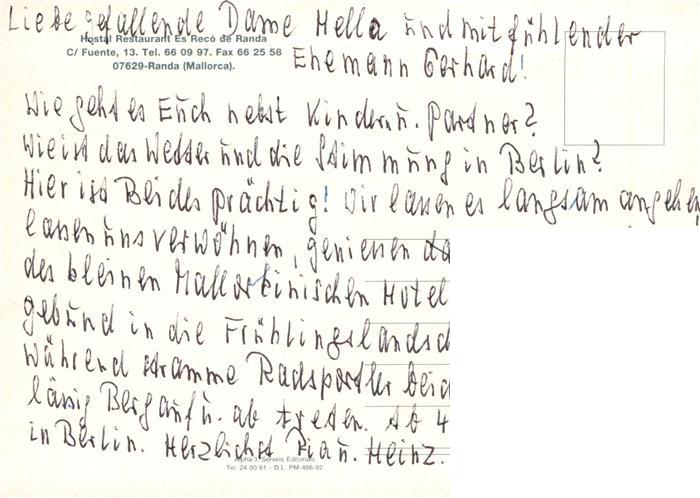 Liebe gefallende Dame Hella und mitfühlender
Hostal Restaurant Es Recó de Randa
C/ Fuente, 13. Tel. 66 09 97. Fax 66 25 58
07629-Randa (Mallorca).
Ehemann Gerhard!
Wie geht es Euch nebst Kindern u. Partner?
Wie ist das Wetter und die Stimmung in Berlin?
Hier ist Beides prächtig! Wir lassen es langsam angehen,
lassen uns verwöhnen, geniessen da
des kleinen Mallorkinischen Hotel
gebund in die Frühlingslandsch
während stramme Radsportler beid
lässig Bergauf u. ab treten. Ab 4
in Berlin. Herzlichst Pia u. Heinz.
Alpha 3, Serveis Editorials
Tel. 24 00 61 - D.L. PM-486-92